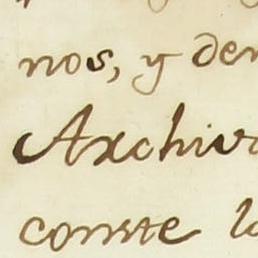 nos, y de
Archiv
conste